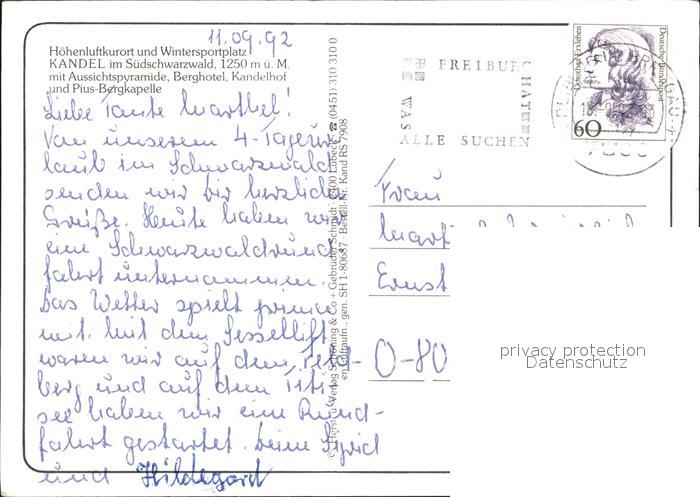 11.09.92
Höhenluftkurort und Wintersportplatz
KANDEL im Südschwarzwald, 1250 m ü. M.
mit Aussichtspyramide, Berghotel, Kandelhof
und Pius-Bergkapelle
Liebe Tante Marthel!
Von unserem 4-Tageur
laub im Schwarzwald
senden wir dir herzliche
Grüße. Heute haben wir
eine Schwarzwaldrund
fahrt unternommen.
Das Wetter spielt prima
mit. Mit dem Sessellift
waren wir auf dem Feld-
berg und auf dem Titi
see haben wir eine Rund-
fahrt gestartet. Deine Sigrid
und Hildegard
Verlag Schöning & Co + Gebrüder Schmidt · 2400 Lübeck ☎ (0451) 310 310 0
Luftaufn., gen. SH 1-80687 · Bestell-Nr. Kand RS 7908
FREIBURG
HAT
WAS
ALLE SUCHEN
Dorothea Erxleben
Deutsche Bundespost
60
Frau
Ernst
O-80
privacy protection
Datenschutz